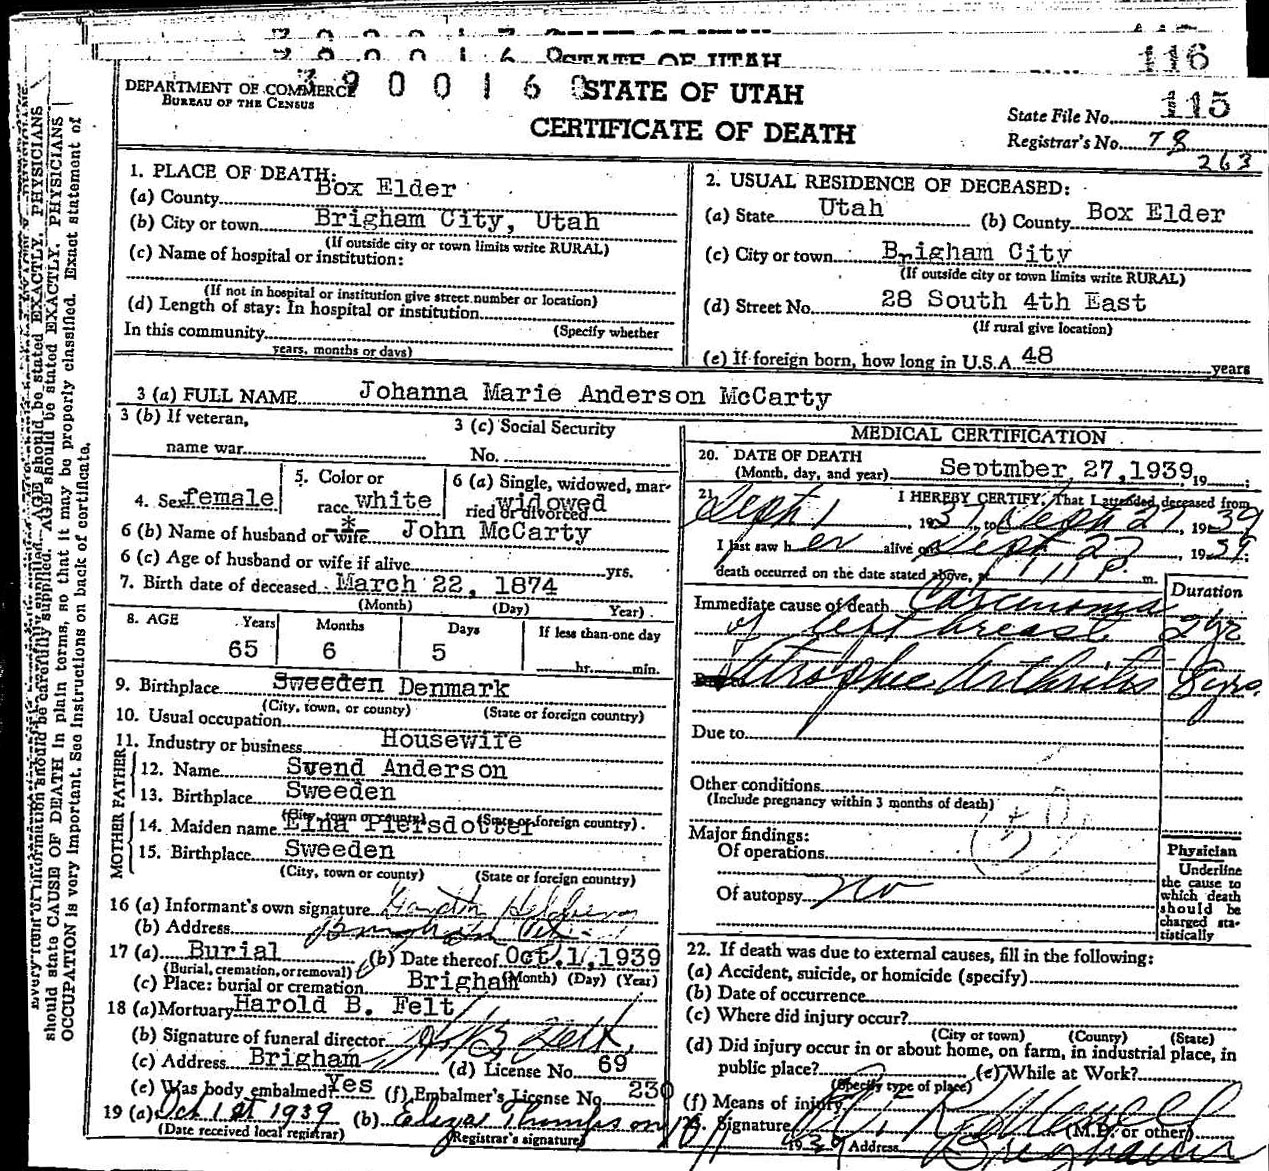 STATE OF UTAH
116
DEPARTMENT OF COMMERCE
BUREAU OF THE CENSUS
3900168
STATE OF UTAH
CERTIFICATE OF DEATH
State File No. 115
Registrar's No. 78
263
1. PLACE OF DEATH:
(a) County Box Elder
(b) City or town Brigham City, Utah
(If outside city or town limits write RURAL)
(c) Name of hospital or institution:
(If not in hospital or institution give street number or location)
(d) Length of stay: In hospital or institution
In this community (Specify whether
years, months or days)
2. USUAL RESIDENCE OF DECEASED:
(a) State Utah (b) County Box Elder
(c) City or town Brigham City
(If outside city or town limits write RURAL)
(d) Street No. 28 South 4th East
(If rural give location)
(e) If foreign born, how long in U.S.A. 48 years
3 (a) FULL NAME Johanna Marie Anderson McCarty
3 (b) If veteran,
name war
3 (c) Social Security
No.
4. Sex female
5. Color or
race white
6 (a) Single, widowed, mar-
ried or divorced widowed
6 (b) Name of husband or wife John McCarty
6 (c) Age of husband or wife if alive yrs.
7. Birth date of deceased March 22, 1874
(Month) (Day) Year)
8. AGE Years Months Days If less than one day
65 6 5 hr. min.
9. Birthplace Sweeden Denmark
(City, town, or county) (State or foreign country)
10. Usual occupation
11. Industry or business Housewife
FATHER
12. Name Svend Anderson
13. Birthplace Sweeden
(City, town or county) (State or foreign country)
MOTHER
14. Maiden name Elna Piersdotter
15. Birthplace Sweeden
(City, town or county) (State or foreign country)
16 (a) Informant's own signature
(b) Address Brigham
17 (a) Burial (b) Date thereof Oct. 1, 1939
(Burial, cremation, or removal) (Month) (Day) (Year)
(c) Place: burial or cremation Brigham
18 (a) Mortuary Harold B. Felt
(b) Signature of funeral director
(c) Address Brigham (d) License No. 69
(e) Was body embalmed? Yes (f) Embalmer's License No. 230
19 (a) Oct 1st 1939 (b)
(Date received local registrar) (Registrar's signature)
MEDICAL CERTIFICATION
20. DATE OF DEATH
(Month, day, and year) Septmber 27,1939 19
21 I HEREBY CERTIFY, That I attended deceased from
Sept 1, 1937, to Sept 27, 1939
I last saw her alive on Sept 27, 1939;
death occurred on the date stated above, at m.
Duration
Immediate cause of death Carcinoma
of left breast 2 yr
Atrophic Arthritis 8 yrs.
Due to
Other conditions
(Include pregnancy within 3 months of death)
Major findings:
Of operations
Of autopsy no
Physician
Underline
the cause to
which death
should be
charged sta-
tistically
22. If death was due to external causes, fill in the following:
(a) Accident, suicide, or homicide (specify)
(b) Date of occurrence
(c) Where did injury occur?
(City or town) (County) (State)
(d) Did injury occur in or about home, on farm, in industrial place, in
public place? (e) While at Work?
(Specify type of place)
(f) Means of injury
Signature (M.D. or other)
1939 Address Brigham
AGE should be stated EXACTLY. PHYSICIANS
should state CAUSE OF DEATH in plain terms, so that it may be properly classified. Exact statement of
OCCUPATION is very important. See instructions on back of certificate.